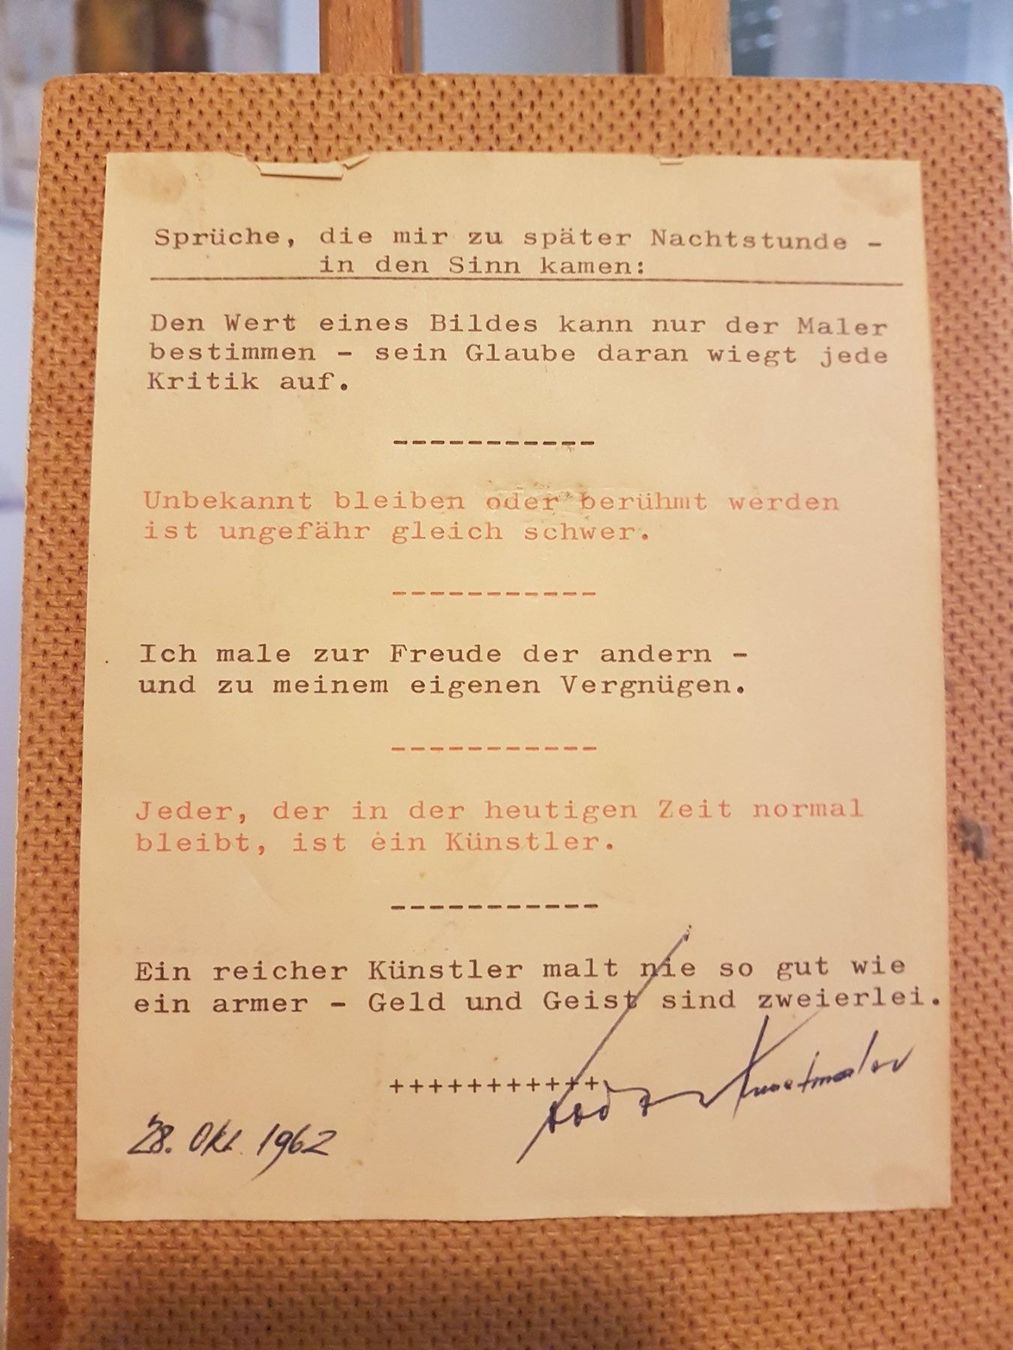 Sprüche, die mir zu später Nachtstunde -
in den Sinn kamen:
Den Wert eines Bildes kann nur der Maler
bestimmen - sein Glaube daran wiegt jede
Kritik auf.
-----------
Unbekannt bleiben oder berühmt werden
ist ungefähr gleich schwer.
-----------
Ich male zur Freude der andern -
und zu meinem eigenen Vergnügen.
-----------
Jeder, der in der heutigen Zeit normal
bleibt, ist ein Künstler.
-----------
Ein reicher Künstler malt nie so gut wie
ein armer - Geld und Geist sind zweierlei.
+++++++++++
Kunstmaler
28. Okt. 1962